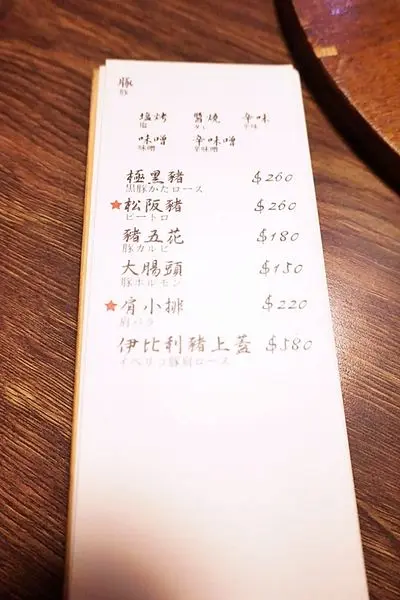 豚
豚
塩烤 醬燒 辛味
塩 タレ 辛味
味噌 辛味噌
味噌 辛味噌
極黑豬 $260
黒豚かたロース
★松阪豬 $260
ピートロ
豬五花 $180
豚カルビ
大腸頭 $150
豚ホルモン
★肩小排 $220
肩バラ
伊比利豬上蓋 $580
イベリコ豚肩ロース